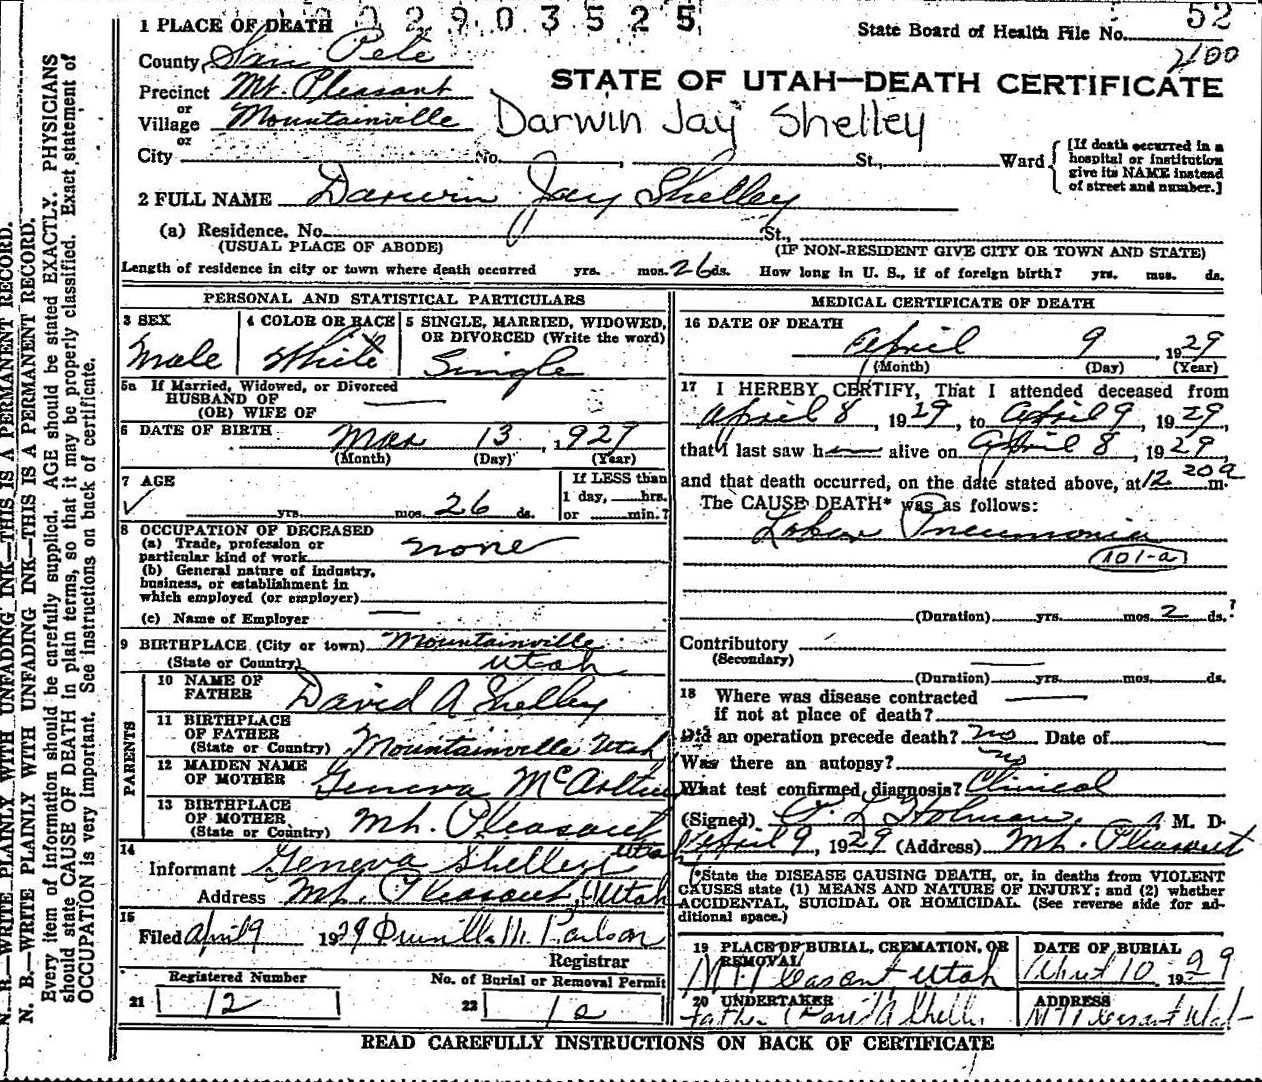 0 2 9 0 3 5 2 5
1 PLACE OF DEATH
State Board of Health File No. 52
County San Pete
2100
Precinct Mt. Pleasant
STATE OF UTAH—DEATH CERTIFICATE
or
Village Mountainville
Darwin Jay Shelley
or
City No. St., Ward
[If death occurred in a
hospital or institution
give its NAME instead
of street and number.]
2 FULL NAME Darwin Jay Shelley
(a) Residence. No. St.,
(USUAL PLACE OF ABODE) (IF NON-RESIDENT GIVE CITY OR TOWN AND STATE)
Length of residence in city or town where death occurred yrs. mos. 26 ds. How long in U. S., if of foreign birth? yrs. mos. ds.
PERSONAL AND STATISTICAL PARTICULARS
3 SEX Male
4 COLOR OR RACE White
5 SINGLE, MARRIED, WIDOWED,
OR DIVORCED (Write the word)
Single
5a If Married, Widowed, or Divorced
HUSBAND OF
(OR) WIFE OF
6 DATE OF BIRTH Mar 13, 1929
(Month) (Day) (Year)
7 AGE
yrs. mos. 26 ds.
If LESS than
1 day, hrs.
or min.?
8 OCCUPATION OF DECEASED
(a) Trade, profession or
particular kind of work none
(b) General nature of industry,
business, or establishment in
which employed (or employer)
(c) Name of Employer
9 BIRTHPLACE (City or town) Mountainville
(State or Country) Utah
PARENTS
10 NAME OF
FATHER David A Shelley
11 BIRTHPLACE
OF FATHER
(State or Country) Mountainville Utah
12 MAIDEN NAME
OF MOTHER Geneva McArthur
13 BIRTHPLACE
OF MOTHER
(State or Country) Mt. Pleasant
Utah
14
Informant Geneva Shelley
Address Mt. Pleasant, Utah
15
Filed April 9 1929
Registrar
Registered Number
21 12
No. of Burial or Removal Permit
22
MEDICAL CERTIFICATE OF DEATH
16 DATE OF DEATH
April 9, 1929
(Month) (Day) (Year)
17 I HEREBY CERTIFY, That I attended deceased from
April 8, 1929, to April 9, 1929,
that I last saw h alive on April 8, 1929,
and that death occurred, on the date stated above, at 12 20a m.
The CAUSE DEATH* was as follows:
Lobar Pneumonia
101-a
(Duration) yrs. mos. 2 ds. ?
Contributory
(Secondary)
(Duration) yrs. mos. ds.
18 Where was disease contracted
if not at place of death?
Did an operation precede death? no Date of
Was there an autopsy? no
What test confirmed diagnosis? Clinical
(Signed) O. L Holman, M. D.
April 9, 1929 (Address) Mt. Pleasant
(*State the DISEASE CAUSING DEATH, or, in deaths from VIOLENT
CAUSES state (1) MEANS AND NATURE OF INJURY; and (2) whether
ACCIDENTAL, SUICIDAL OR HOMICIDAL. (See reverse side for ad-
ditional space.)
19 PLACE OF BURIAL, CREMATION, OR
REMOVAL
Mt Pleasant Utah
DATE OF BURIAL
April 10, 1929
20 UNDERTAKER
Father David A Shelley
ADDRESS
Mt Pleasant Utah
READ CAREFULLY INSTRUCTIONS ON BACK OF CERTIFICATE
N. B.—WRITE PLAINLY WITH UNFADING INK—THIS IS A PERMANENT RECORD.
N. B.—WRITE PLAINLY WITH UNFADING INK—THIS IS A PERMANENT RECORD.
Every item of information should be carefully supplied. AGE should be stated EXACTLY. PHYSICIANS
should state CAUSE OF DEATH in plain terms, so that it may be properly classified. Exact statement of
OCCUPATION is very important. See instructions on back of certificate.